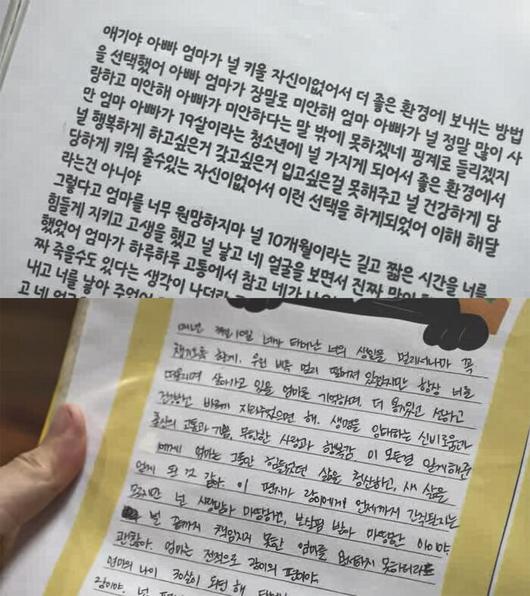 애기야 아빠 엄마가 널 키울 자신이없어서 더 좋은 환경에 보내는 방법
을 선택했어 아빠 엄마가 장말로 미안해 엄마 아빠가 널 정말 많이 사
랑하고 미안해 아빠가 미안하다는 말 밖에 못하겠네 핑계로 들리겠지
만 엄마 아빠가 19살이라는 청소년에 널 가지게 되어서 좋은 환경에서
널 행복하게 하고싶은거 갖고싶은거 입고싶은걸 못해주고 널 건강하게 당
당하게 키워 줄수있는 자신이없어서 이런 선택을 하게되었어 이해 해달
라는건 아니야
그렇다고 엄마를 너무 원망하지마 널 10개월이라는 길고 짧은 시간을 너를
힘들게 지키고 고생을 했고 널 낳고 네 얼굴을 보면서 진짜 많이
했었어 엄마가 하루하루 고통에서 참고 네가
짜 죽을수도 있다는 생각이 나더라
내고 너를 낳아 주었어
고 네 얼굴
매년 네가 태어난 너의 생일을 멀리서나마 꼭
하게. 우린 비록 멀리 떨어져 있겠지만 항상 너를
떠올리며 살아가고 있을 엄마를 기억하며, 더 용기있고 성장하고
건강한 바르게 자라주었으면 해. 생명을 잉태하는 신비로움과
출산의 고통과 기쁨, 무한한 사랑과 행복감 이 모든걸 알게해준
에게. 엄마는 그동안 힘들었던 삶을 청산하고, 새 삶을
얻게 된 것 같아. 이 편지가 강이에게 언제까지 간직될지는
모르지만 널 사랑받아 마땅하고, 보살핌 받아 마땅한 아이야.
널 끝까지 책임지지 못한 엄마를 용서하지 못하더라도
괜찮아. 엄마는 전적으로 강이의 편이야.
엄마의 나이 30살이 되던 해
강이야. 널